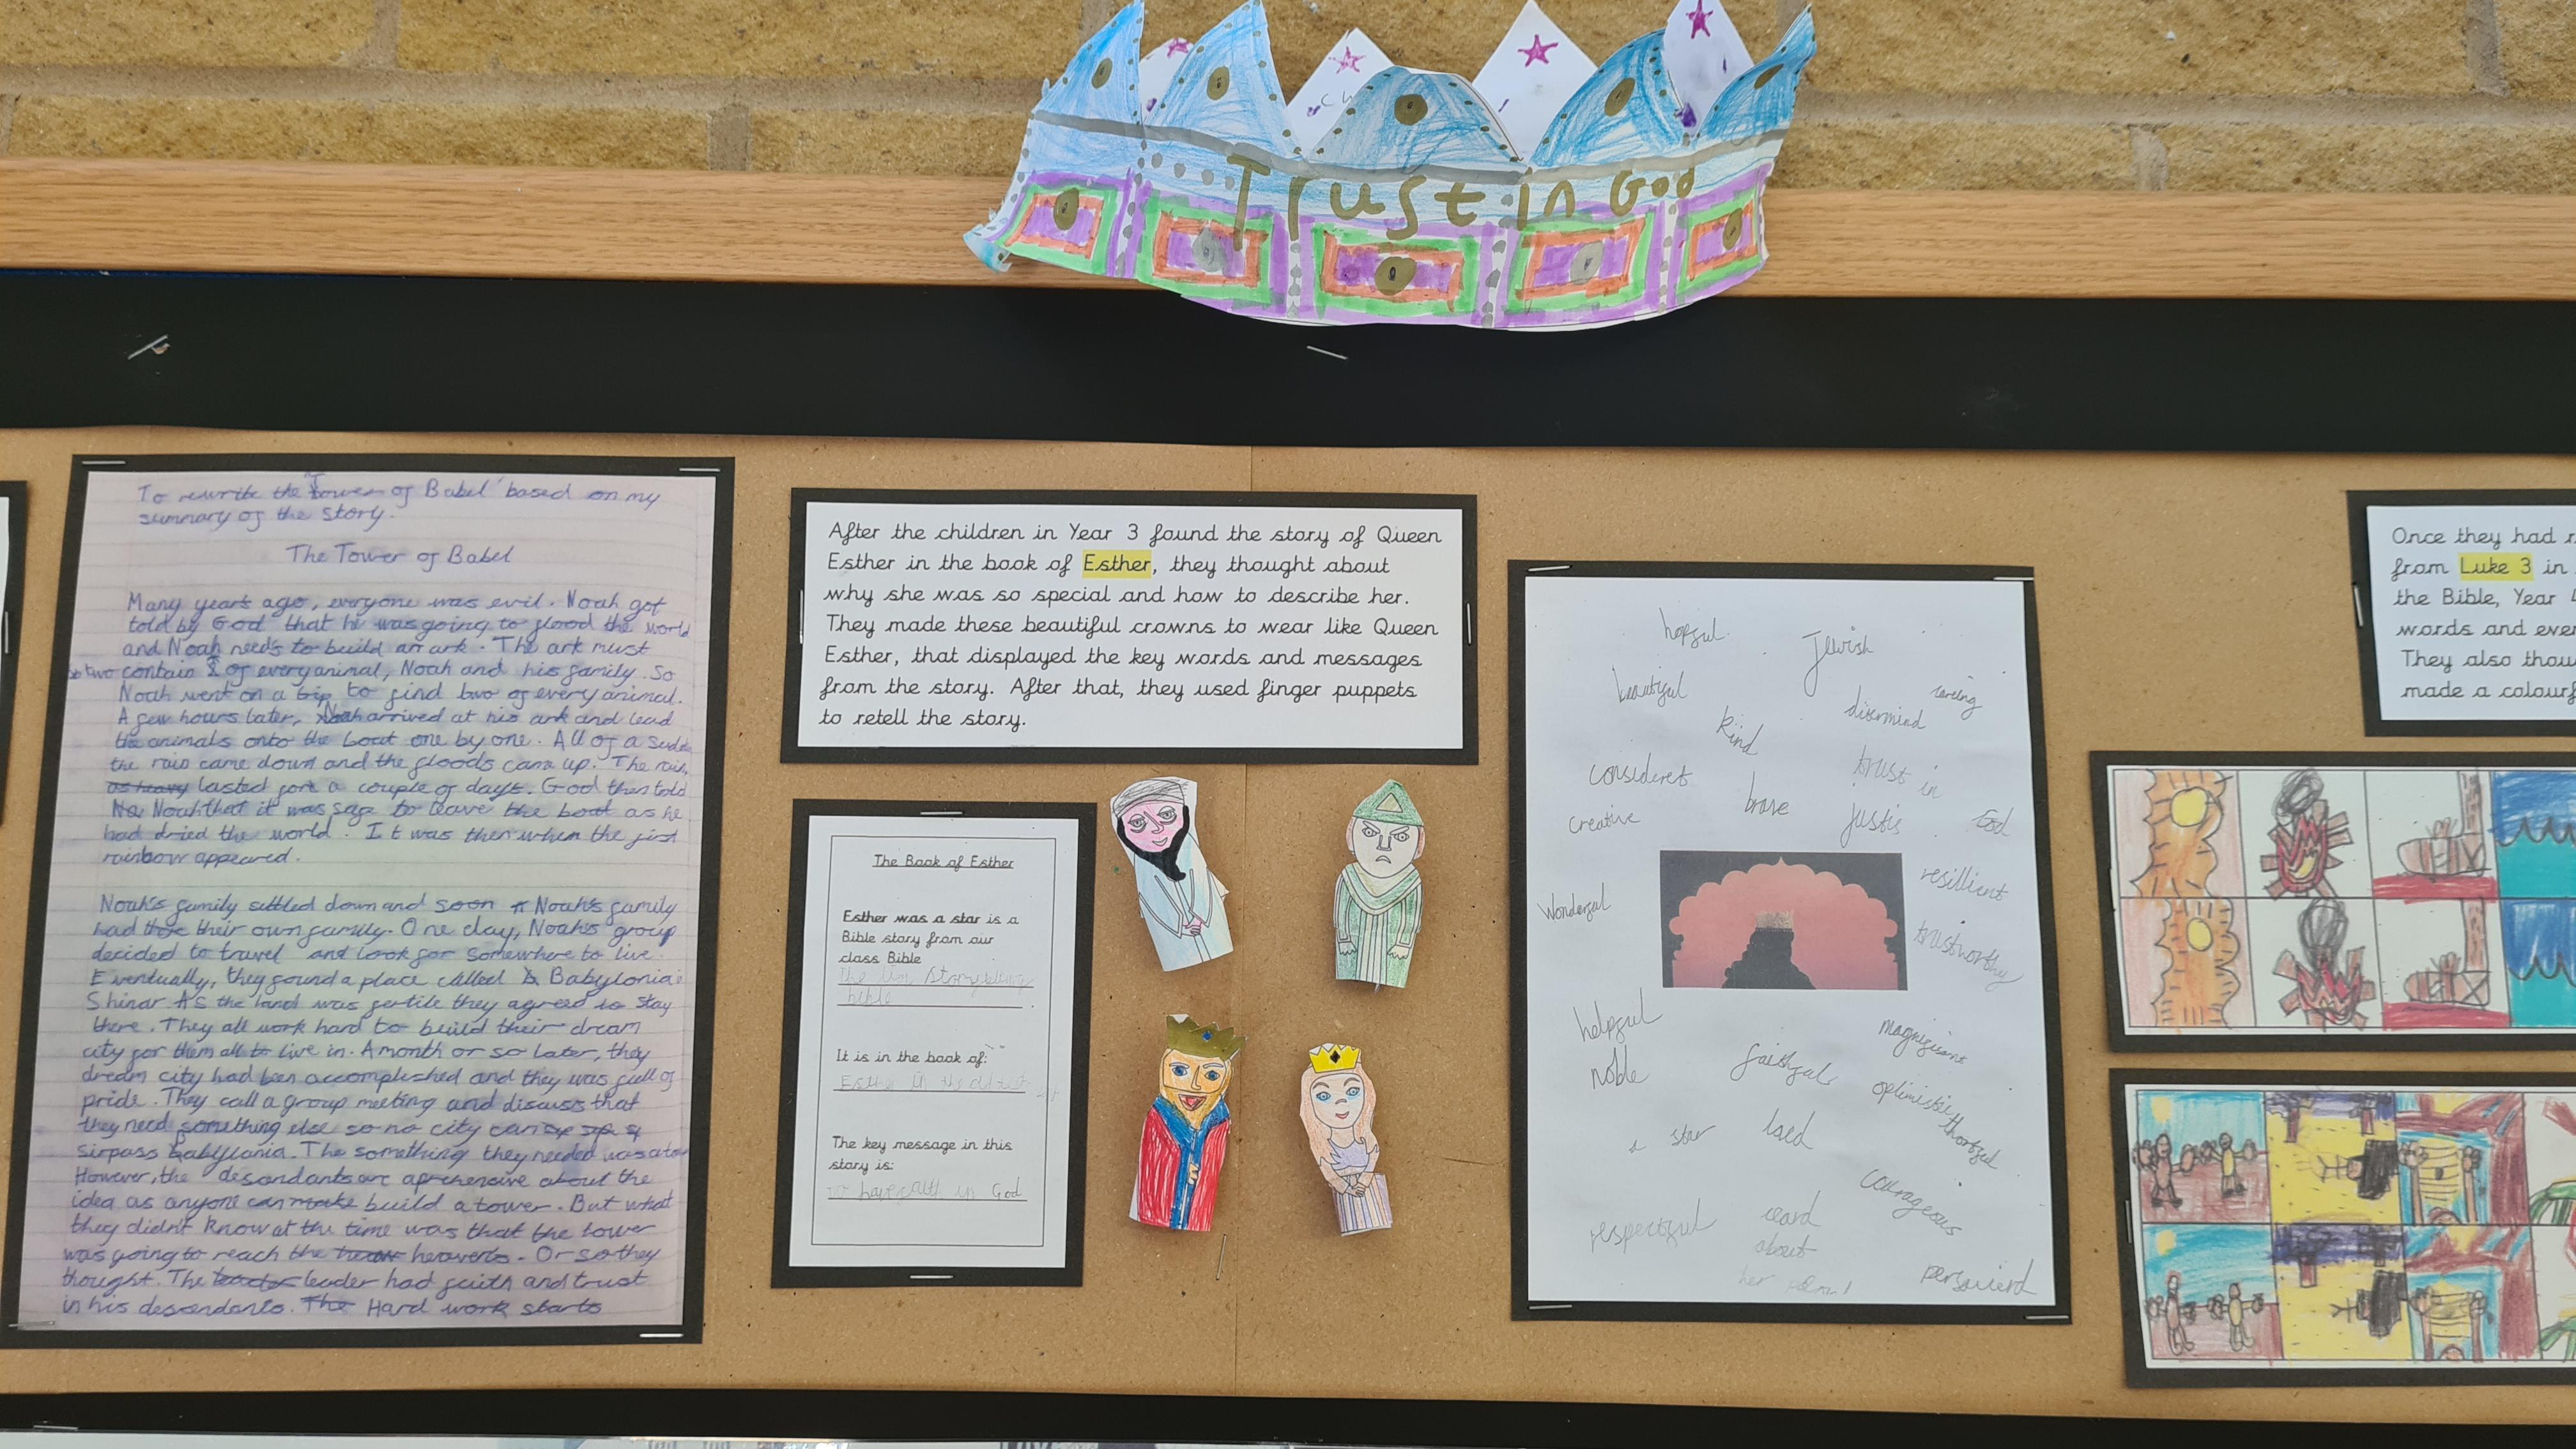 Trust in God
To rewrite the Tower of Babel based on my
summary of the story.
The Tower of Babel
Many years ago, everyone was evil. Noah got
told by God that he was going to flood the world
and Noah needs to build an ark. The ark must
two contain of every animal, Noah and his family. So
Noah went on a trip to find two of every animal.
A few hours later, Noah arrived at his ark and lead
the animals onto the boat one by one. All of a
the rain came down and the floods came up. The rain,
as heavy lasted for a couple of days. God then told
No Noah that it was safe to leave the boat as he
had dried the world. It was then when the first
rainbow appeared.
Noah's family settled down and soon Noah's family
had their own family. One day, Noah's group
decided to travel and look for somewhere to live.
Eventually, they found a place called Babylonia
Shinar. As the land was fertile they agreed to stay
there. They all work hard to build their dream
city for them all to live in. A month or so later, they
dream city had been accomplished and they was full of
pride. They call a group meeting and discuss that
they need something else so no city can
sirpass Babylonia. The something they needed was a
However, the desandants are aprehensive about the
idea as anyone can make build a tower. But what
they didn't know at the time was that the tower
was going to reach the heavens. Or so they
thought. The leader had faith and trust
in his descendants. The Hard work starts
After the children in Year 3 found the story of Queen
Esther in the book of Esther, they thought about
why she was so special and how to describe her.
They made these beautiful crowns to wear like Queen
Esther, that displayed the key words and messages
from the story. After that, they used finger puppets
to retell the story.
The Book of Esther
Esther was a star is a
Bible story from our
class Bible
The
bible
It is in the book of:
Esther in the
The key message in this
story is:
have faith in God
hopful
Jewish
beautiful
caring
disermind
kind
consideret
trust in God
creative
brave
justis
resillient
Wonderful
trustworthy
helpful
noble
faithful
optimistic
a star
courageous
respectful
card
about
her
Once they had r
from Luke 3 in
the Bible, Year 4
words and eve
They also thou
made a colourf